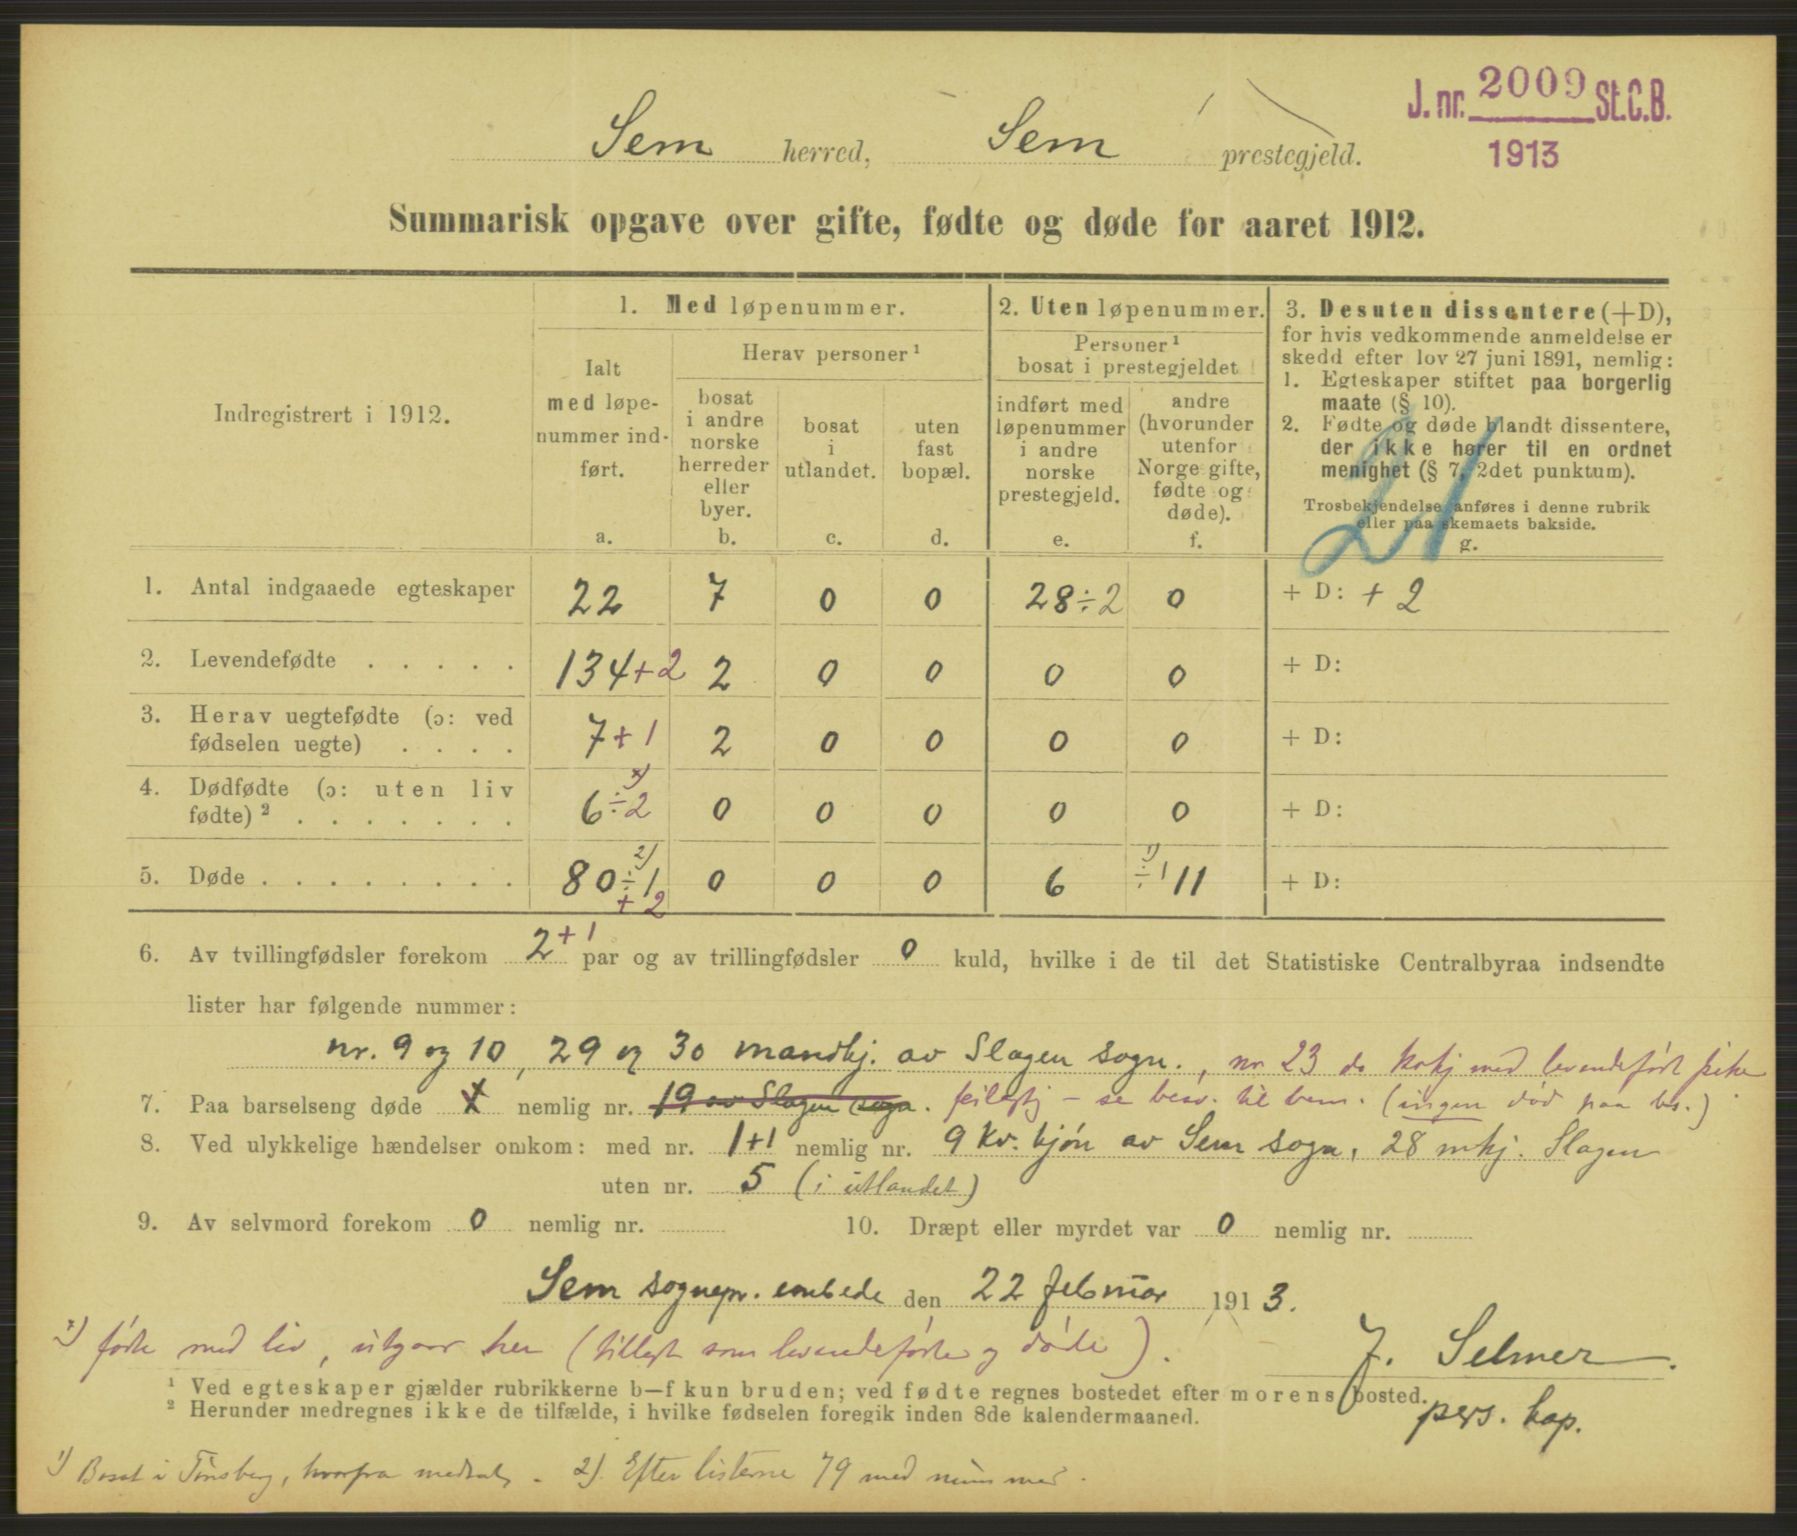 J. nr. 2009 St.C.B.
1913
Sem herred, Sem prestegjeld.
Summarisk opgave over gifte, fødte og døde for aaret 1912.
Indregistrert i 1912.
1. Med løpenummer.
Ialt
med løpe-
nummer ind-
ført.
a.
Herav personer ¹
bosat
i andre
norske
herreder
eller
byer.
b.
bosat
i
utlandet.
c.
uten
fast
bopæl.
d.
2. Uten løpenummer.
Personer ¹
bosat i prestegjeldet
indført med
løpenummer
i andre
norske
prestegjeld.
e.
andre
(hvorunder
utenfor
Norge gifte,
fødte og
døde).
f.
3. Desuten dissentere (+D),
for hvis vedkommende anmeldelse er
skedd efter lov 27 juni 1891, nemlig:
1. Egteskaper stiftet paa borgerlig
maate (§ 10).
2. Fødte og døde blandt dissentere,
der ikke hører til en ordnet
menighet (§ 7, 2det punktum).
Trosbekjendelse anføres i denne rubrik
eller paa skemaets bakside.
g.
21
1. Antal indgaaede egteskaper 22 7 0 0 28÷2 0 + D: + 2
2. Levendefødte . . . . . 134+2 2 0 0 0 0 + D:
3. Herav uegtefødte (ɔ: ved
fødselen uegte) . . . . 7+1 2 0 0 0 0 + D:
4. Dødfødte (ɔ: uten liv
fødte) ² . . . . . . . 6÷2 x) 0 0 0 0 0 + D:
5. Døde . . . . . . . . 80÷1 2) + 2 0 0 0 6 ÷1 1) 11 + D:
6. Av tvillingfødsler forekom 2+1 par og av trillingfødsler 0 kuld, hvilke i de til det Statistiske Centralbyraa indsendte
lister har følgende nummer:
nr. 9 og 10, 29 og 30 mandkj. av Slagen sogn., nr 23 do kvkj med levendefødt pike
7. Paa barselseng døde x nemlig nr. 19 av Slagen sogn. feilagtig - se besv. til bem. (ingen død paa bs.)
8. Ved ulykkelige hændelser omkom: med nr. 1+1 nemlig nr. 9 kv. kjøn av Sem sogn, 28 mkj. Slagen
uten nr. 5 (i utlandet)
9. Av selvmord forekom 0 nemlig nr. 10. Dræpt eller myrdet var 0 nemlig nr.
Sem sognepr. embede den 22 februar 1913.
x) fødte med liv, utgaar her (tillagt som levendefødte og døde).
J. Selmer.
pers. kap.
¹ Ved egteskaper gjælder rubrikkerne b—f kun bruden; ved fødte regnes bostedet efter morens bosted.
² Herunder medregnes ikke de tilfælde, i hvilke fødselen foregik inden 8de kalendermaaned.
1) Bosat i Tønsberg, hvorfra medtat. 2) Efter listerne 79 med nummer.